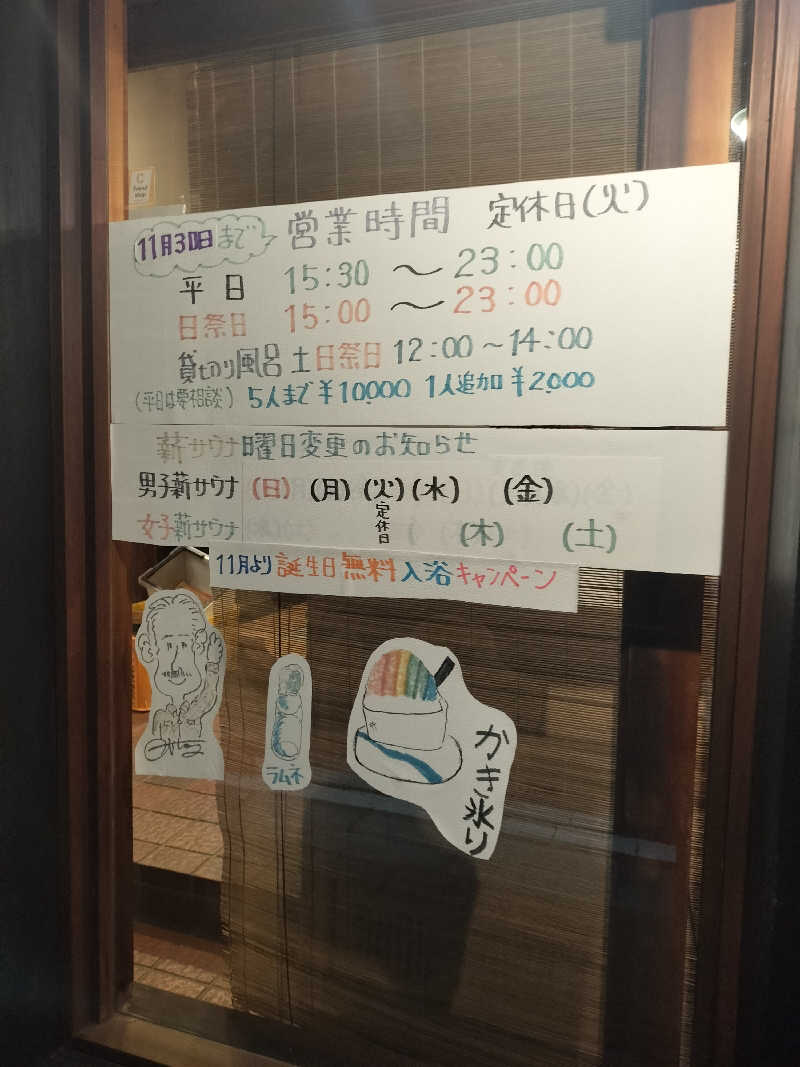 11月30日まで 営業時間 定休日(火)
平日 15:30 〜 23:00
日祭日 15:00 〜 23:00
貸切り風呂 土日祭日 12:00 〜 14:00
(平日は要相談) 5人まで ¥10,000 1人追加 ¥2,000
薪サウナ曜日変更のお知らせ
男子薪サウナ (日) (月) (火) (水) (金)
定休日
女子薪サウナ (木) (土)
11月より誕生日無料入浴キャンペーン
ラムネ
かき氷り